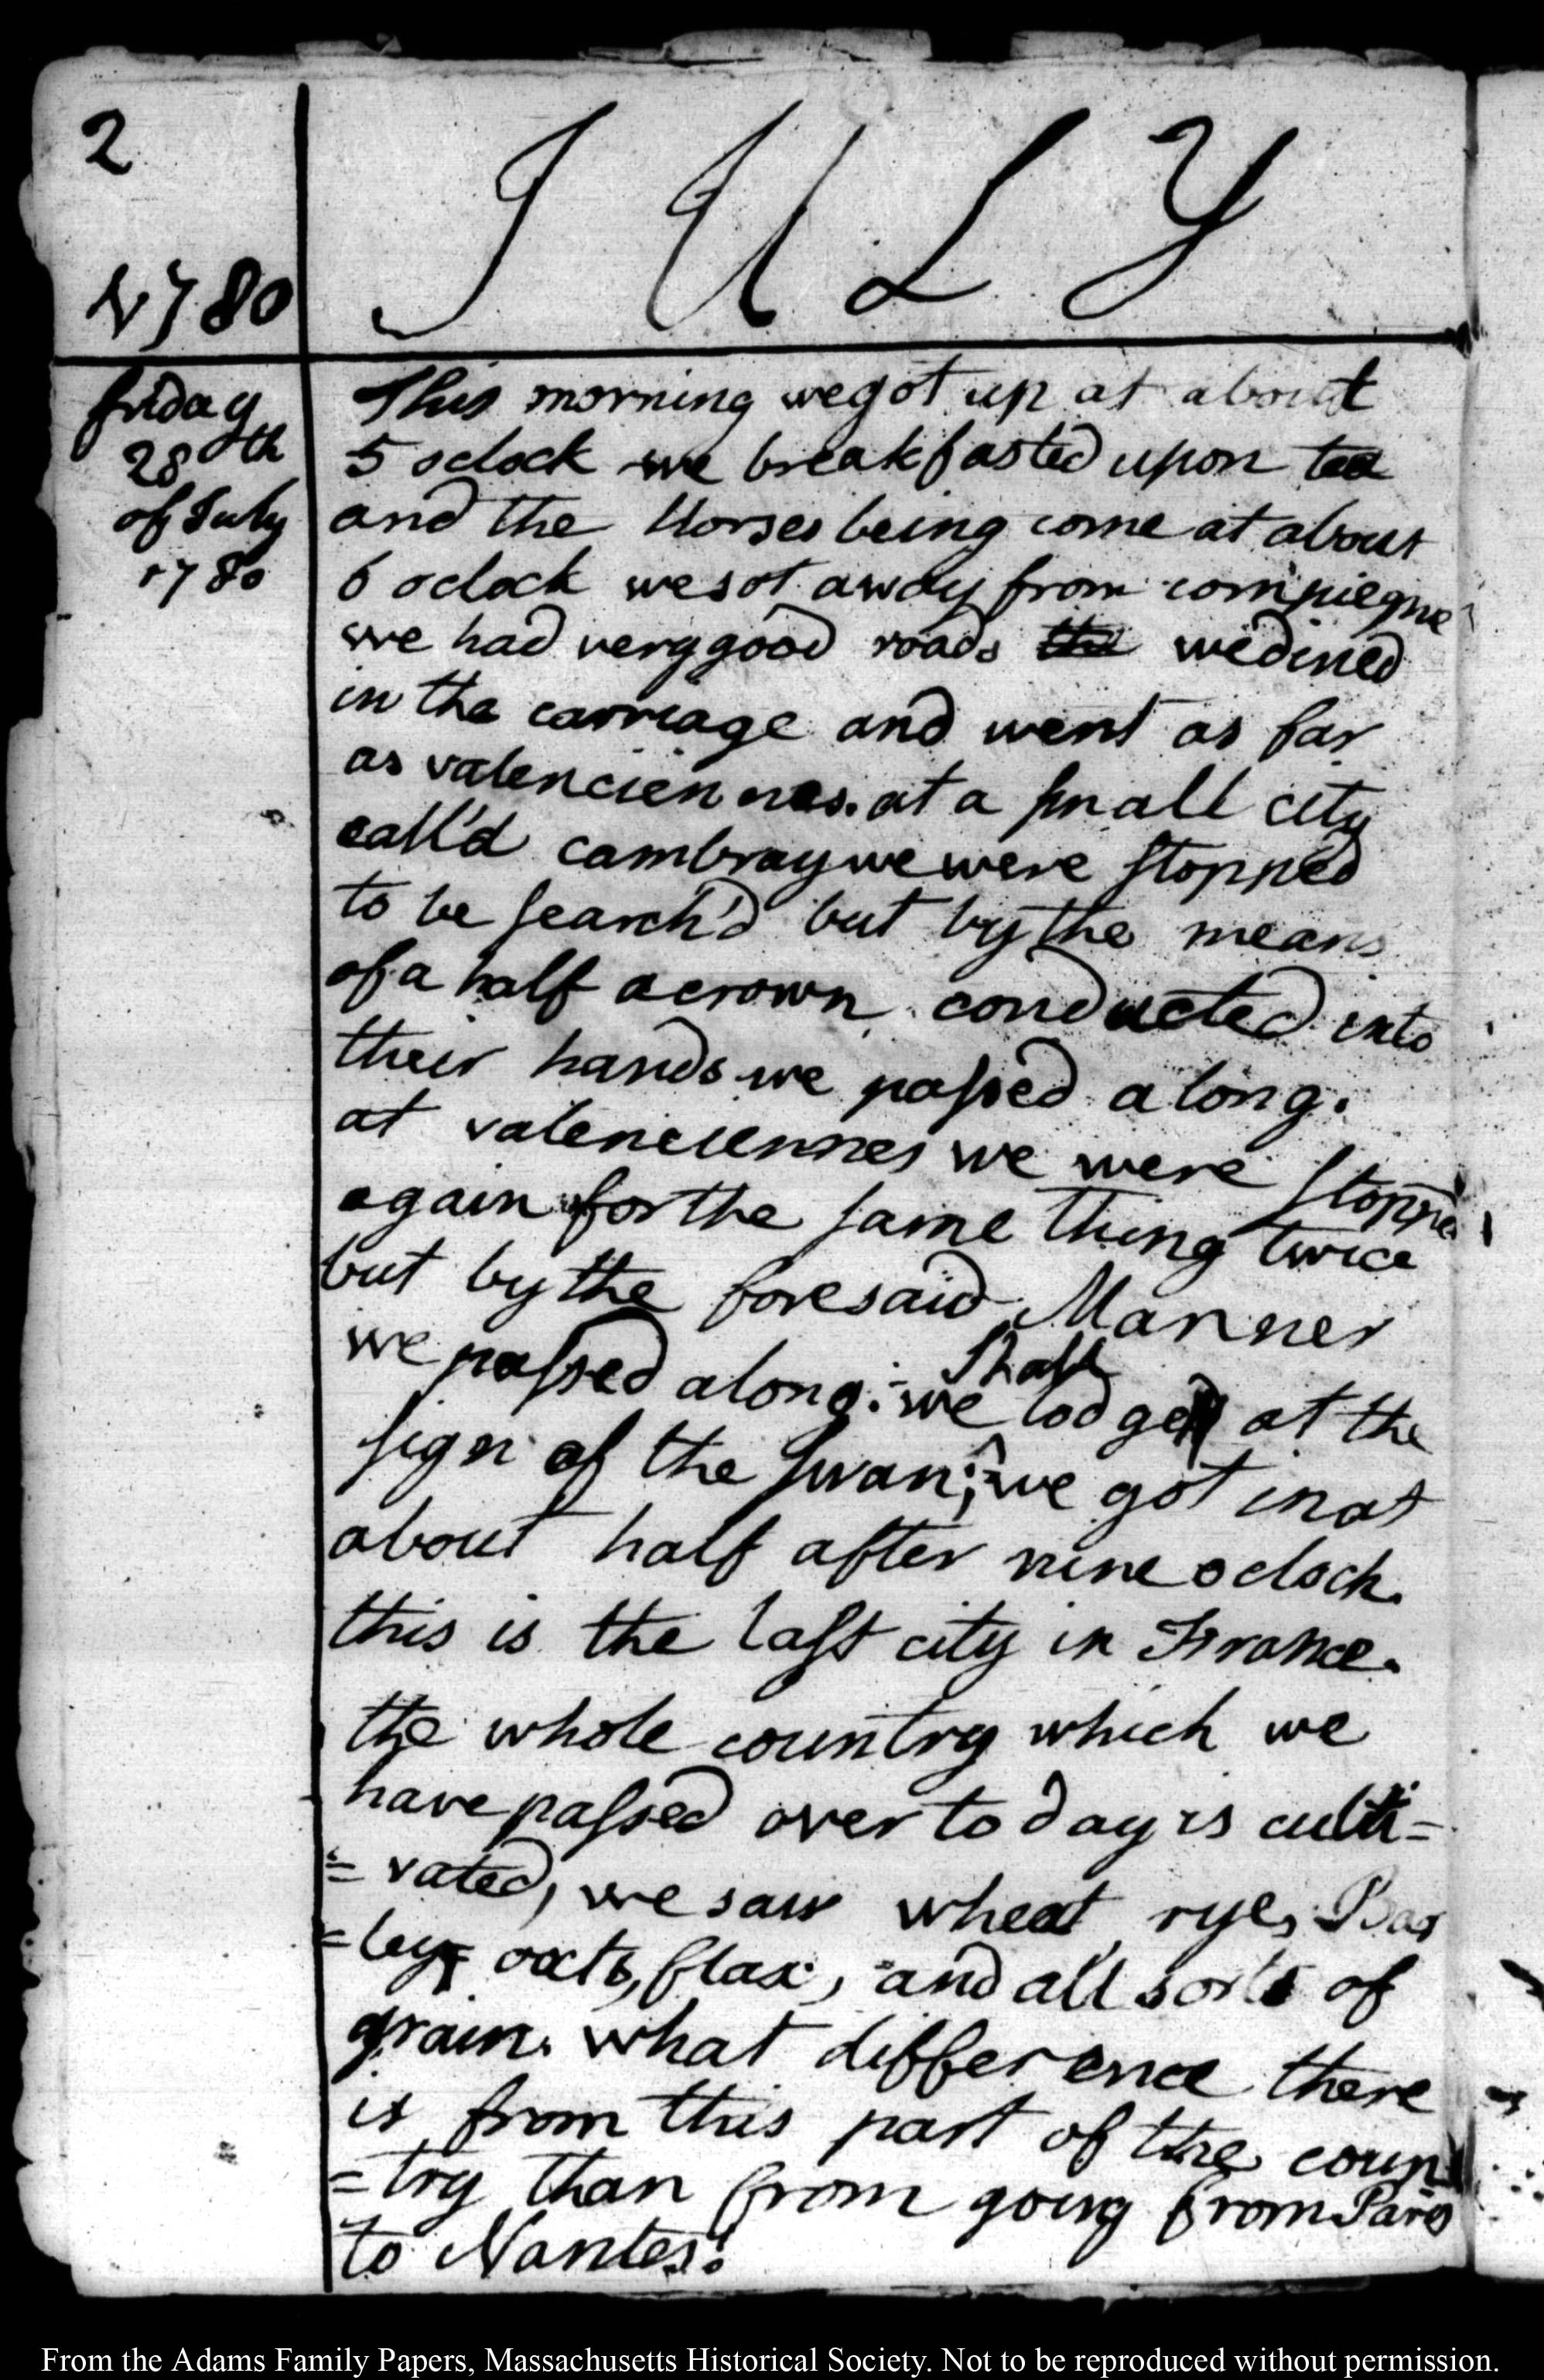 2
JULY
1780
friday
28th
of July
1780
This morning we got up at about
5 oclock we breakfasted upon tea
and the Horses being come at about
6 oclock we sot away from compiegne
we had very good roads the we dined
in the carriage and went as far
as valenciennes. at a small city
call'd cambray we were stopped
to be search'd but by the means
of a half a crown conducted into
their hands we passed along.
at valenciennes we were stopped
again for the same thing twice
but by the foresaid Manner
we passed along. we shall lodge at the
sign of the swan; we got in at
about half after nine oclock.
this is the last city in France.
the whole country which we
have passed over to day is culti=
=vated, we saw wheat, rye, Bar
=ley, oats, flax, and all sorts of
grain. what difference there
is from this part of the coun
=try than from going from Paris
to Nantes!
From the Adams Family Papers, Massachusetts Historical Society. Not to be reproduced without permission.